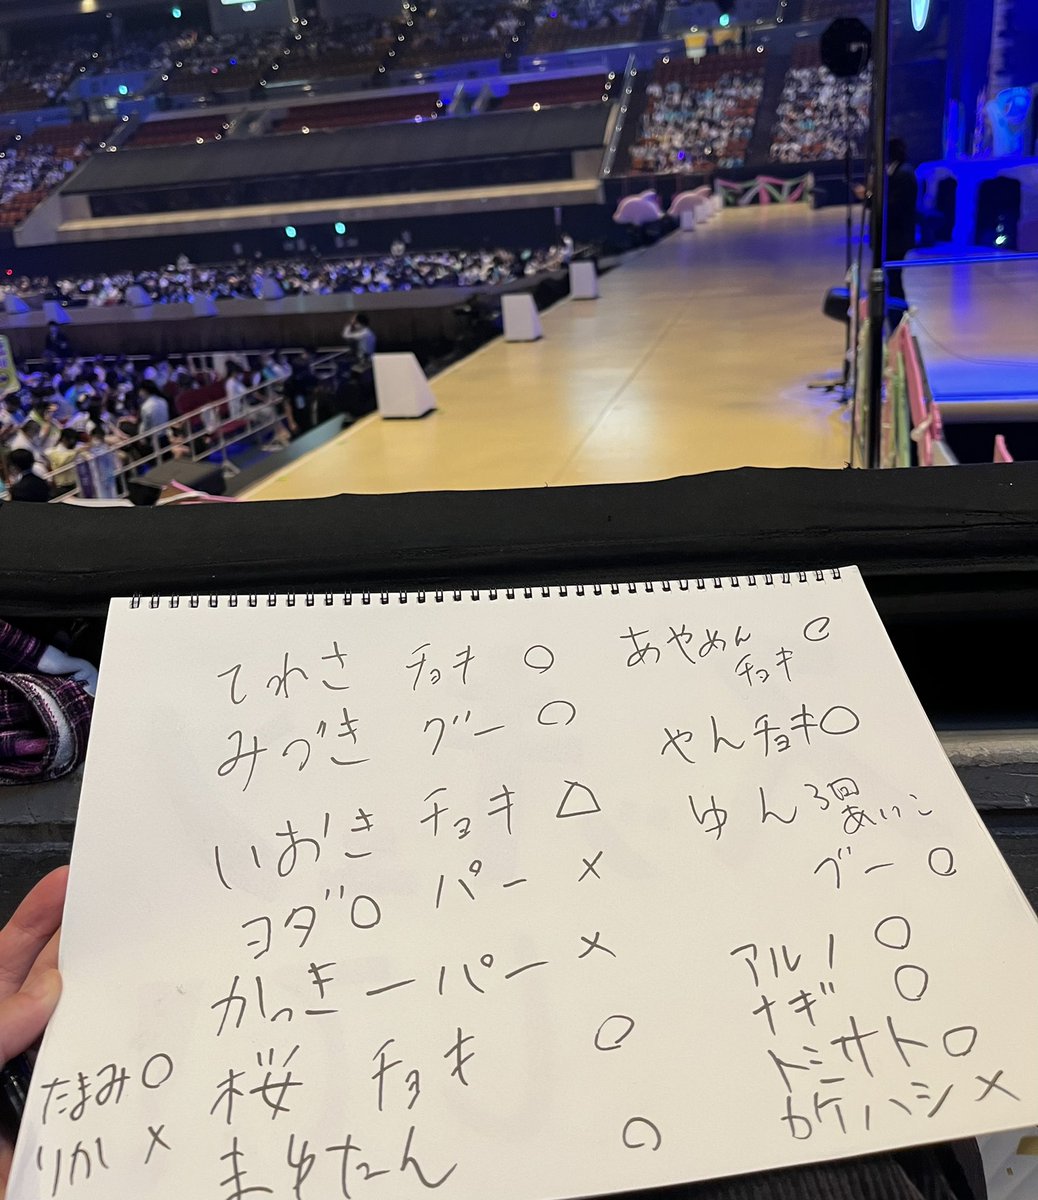 てれさ チョキ ○
みづき グー ○
いおき チョキ △
ヨダロ パー ×
かっきー パー ×
桜 チョキ ○
まゆたん ○
たまみ○
りか ×
あやめん ○
チョキ
やん チョキ○
ゆん 3回
あいこ
グー ○
アルノ ○
ナギ ○
トミサト ○
カケハシ ×